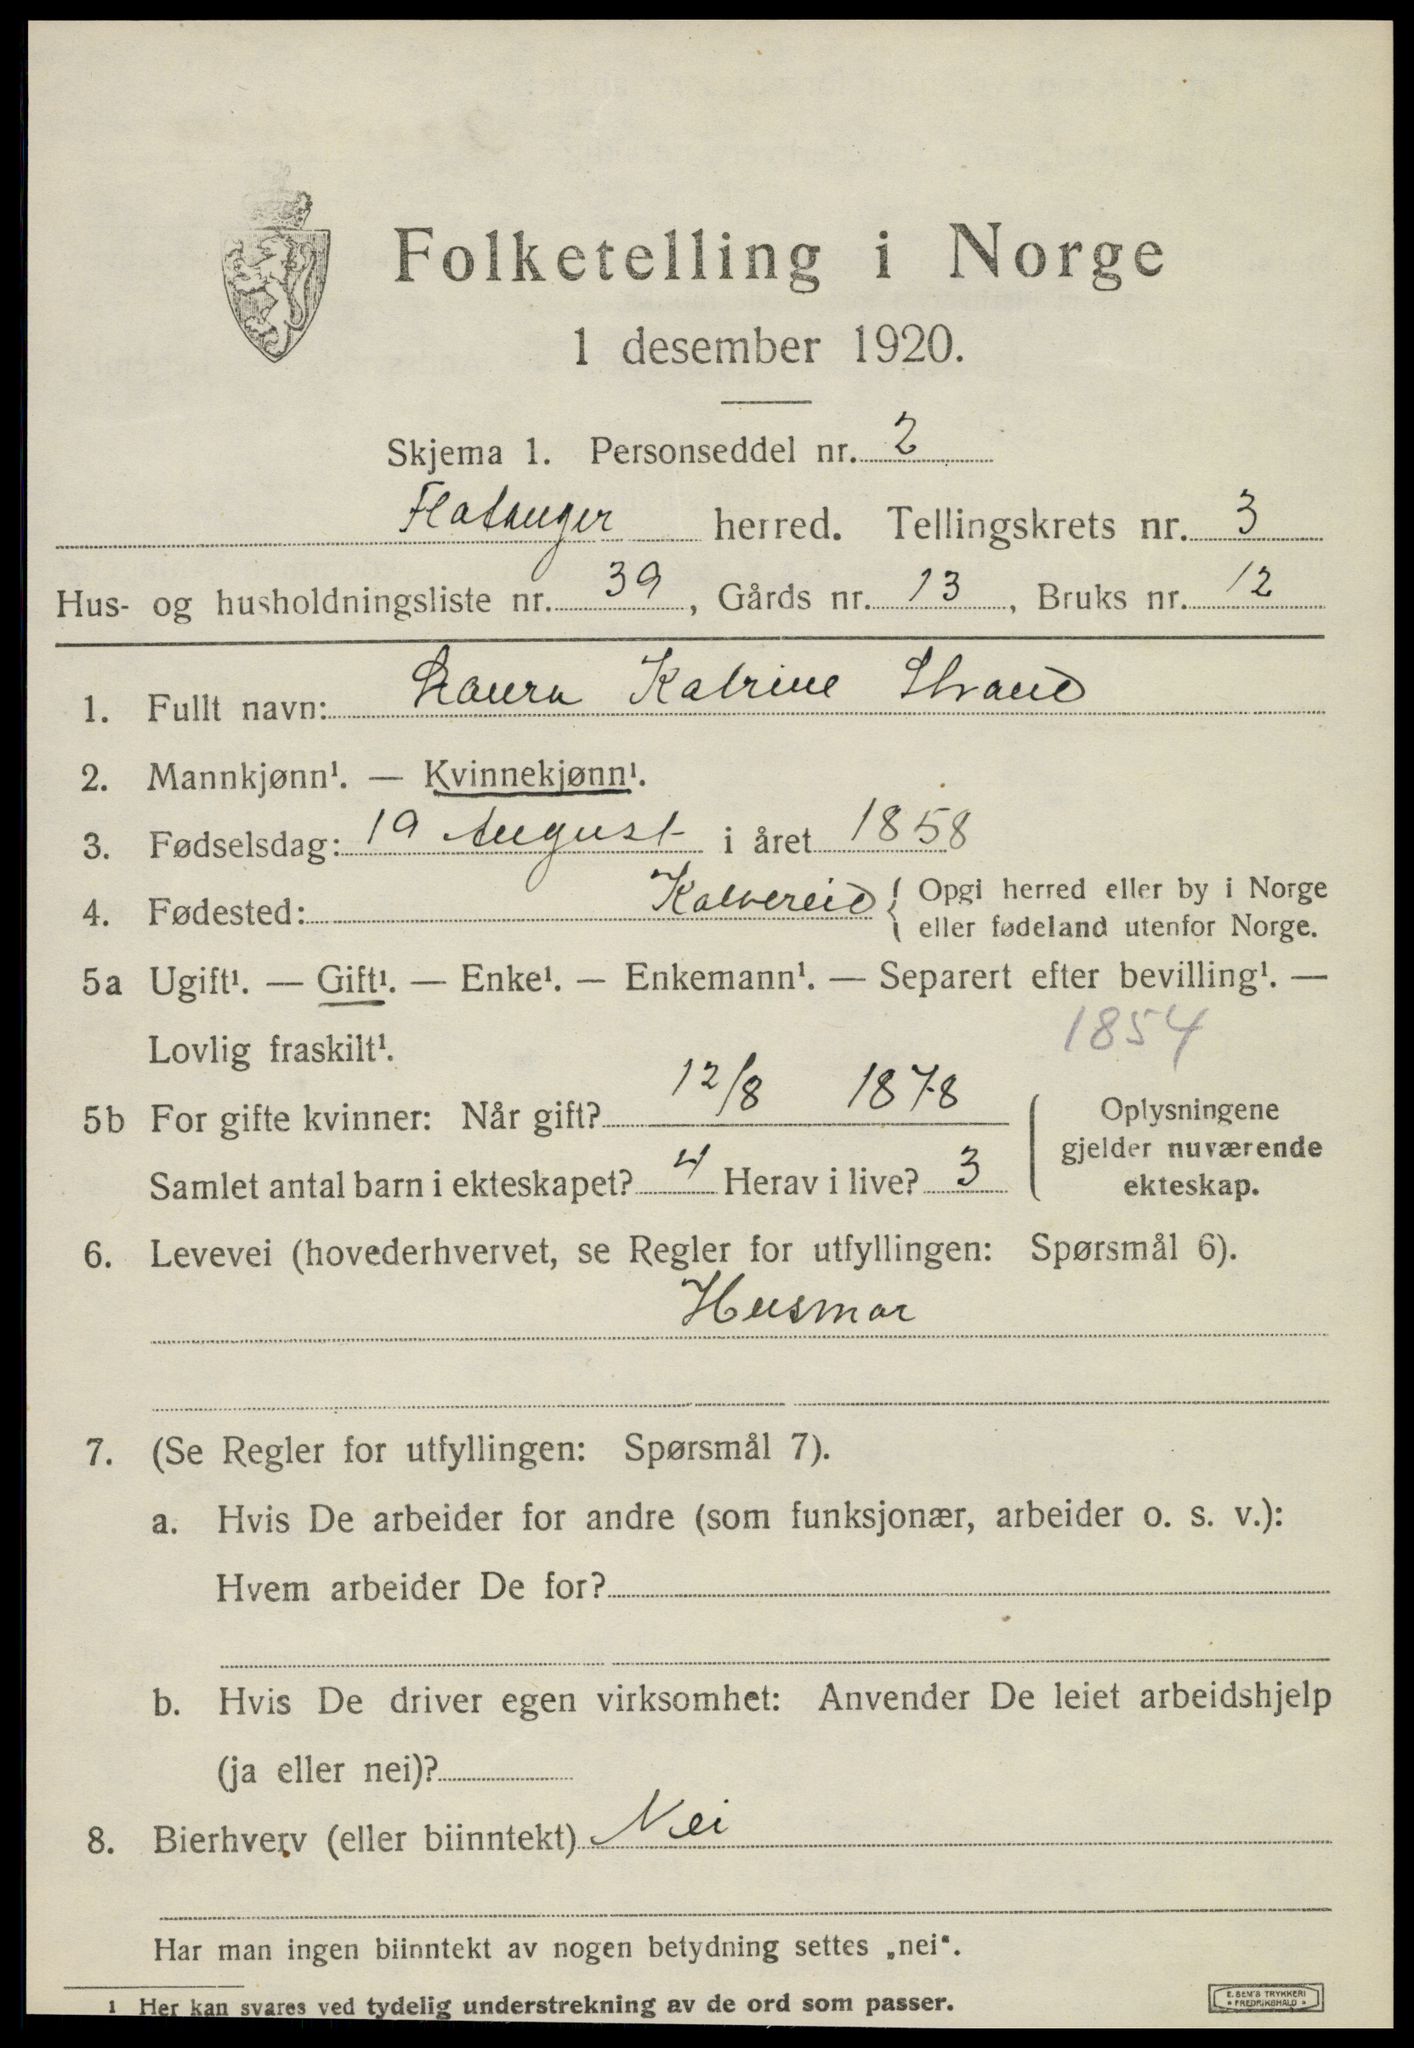 Folketelling i Norge
1 desember 1920.
Skjema 1. Personseddel nr. 2
Flatanger herred. Tellingskrets nr. 3
Hus- og husholdningsliste nr. 39, Gårds nr. 13, Bruks nr. 12
1. Fullt navn: Laura Katrine Strand
2. Mannkjønn¹. — Kvinnekjønn¹.
3. Fødselsdag: 19 August i året 1858
4. Fødested: Kolvereid { Opgi herred eller by i Norge
eller fødeland utenfor Norge.
5a Ugift¹. — Gift¹. — Enke¹. — Enkemann¹. — Separert efter bevilling¹. —
Lovlig fraskilt¹.
1854
5b For gifte kvinner: Når gift? 12/8 1878
Samlet antal barn i ekteskapet? 4 Herav i live? 3
Oplysningene
gjelder nuværende
ekteskap.
6. Levevei (hovederhvervet, se Regler for utfyllingen: Spørsmål 6).
Husmor
7. (Se Regler for utfyllingen: Spørsmål 7).
a. Hvis De arbeider for andre (som funksjonær, arbeider o. s. v.):
Hvem arbeider De for?
b. Hvis De driver egen virksomhet: Anvender De leiet arbeidshjelp
(ja eller nei)?
8. Bierhverv (eller biinntekt) Nei
Har man ingen biinntekt av nogen betydning settes „nei“.
1 Her kan svares ved tydelig understrekning av de ord som passer.
E. SEM'S TRYKKERI
* FREDRIKSHALD *